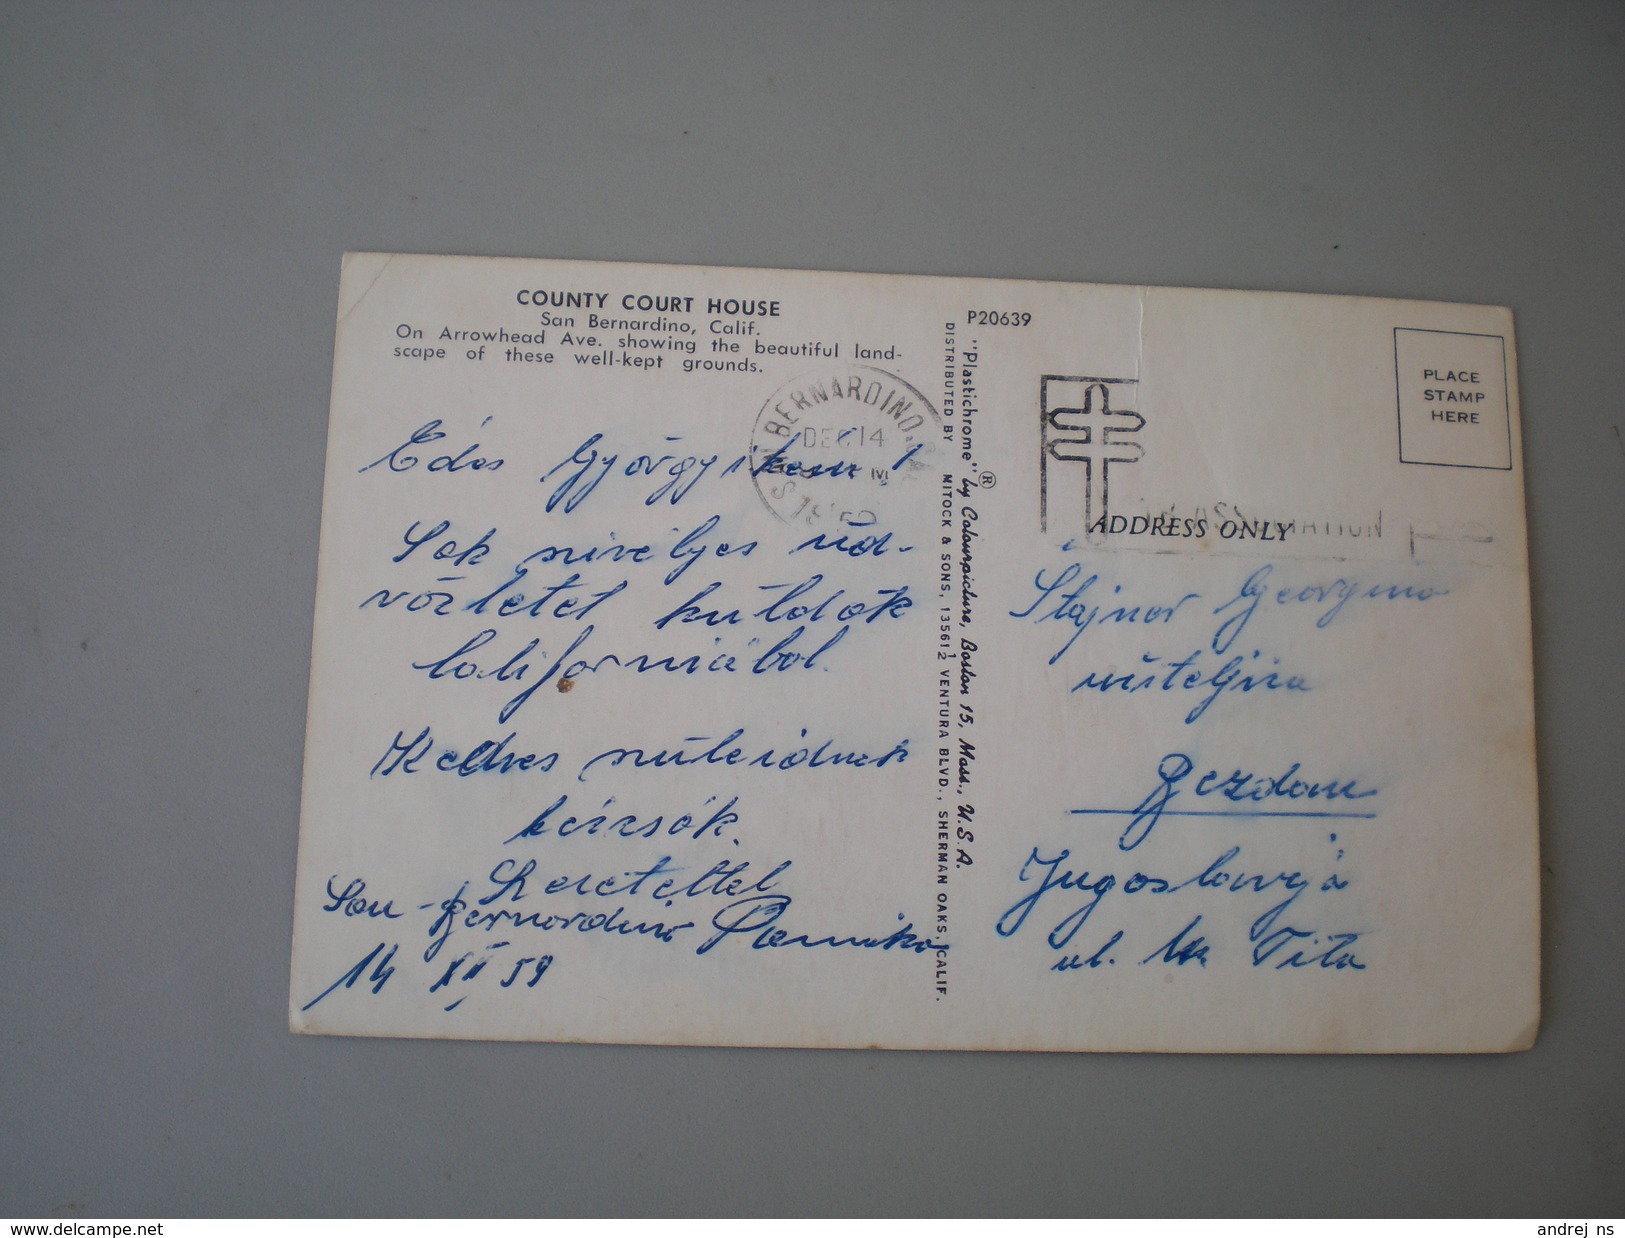 COUNTY COURT HOUSE
San Bernardino, Calif.
On Arrowhead Ave. showing the beautiful land-
scape of these well-kept grounds.
BERNARDINO
DEC 14
Édes Györgyikém!
Sok szivélyes üd-
vözletet küldök
Californiából.
Kedves szüleidnek
kézcsók.
Szeretettel
San-Bernardino
14 XII 59
P20639
"Plastichrome"® by Colourpicture, Boston 15, Mass., U.S.A.
DISTRIBUTED BY MITOCK & SONS, 13561½ VENTURA BLVD., SHERMAN OAKS, CALIF.
PLACE
STAMP
HERE
ADDRESS ONLY
Stajner Georgina
učiteljica
Bezdan
Jugoslavija
ul. M. Tita
delcampe.net
andrej_ns